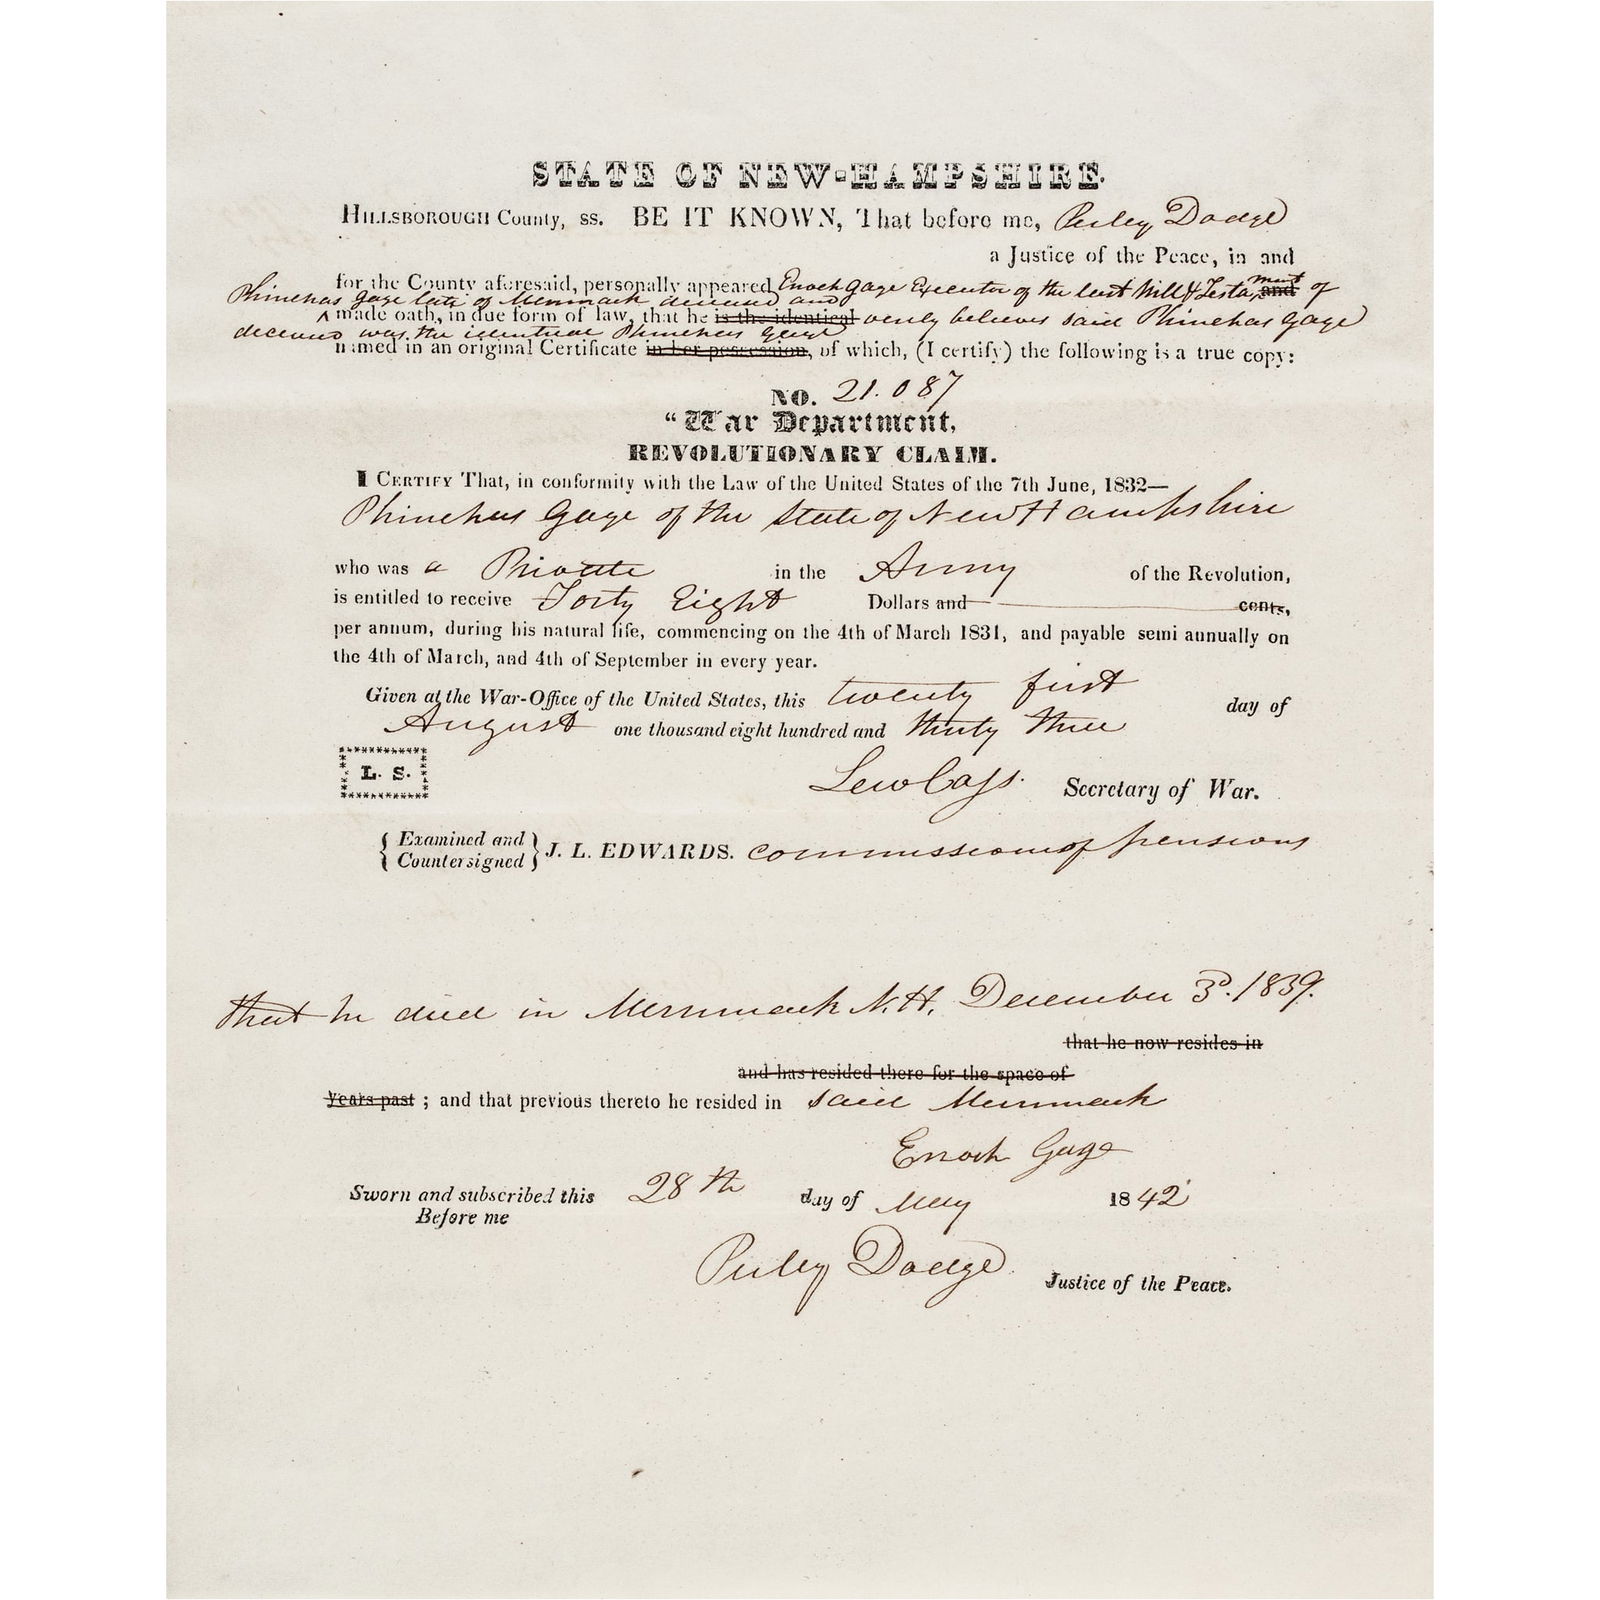 STATE OF NEW-HAMPSHIRE.
HILLSBOROUGH County, ss. BE IT KNOWN, That before me, Perley Dodge
a Justice of the Peace, in and
for the County aforesaid, personally appeared Enoch Gage Executor of the last Will & Testament and of
Phinehas Gage late of Merrimack deceased and
made oath, in due form of law, that he is the identical verily believes said Phinehas Gage
deceased was the identical Phinehas Gage
named in an original Certificate in her possession, of which, (I certify) the following is a true copy:
NO. 21.087
“War Department,
REVOLUTIONARY CLAIM.
I CERTIFY That, in conformity with the Law of the United States of the 7th June, 1832—
Phinehas Gage of the State of New Hampshire
who was a Private in the Army of the Revolution,
is entitled to receive Forty Eight Dollars and cents,
per annum, during his natural life, commencing on the 4th of March 1831, and payable semi annually on
the 4th of March, and 4th of September in every year.
Given at the War-Office of the United States, this twenty first day of
August one thousand eight hundred and thirty three
L. S.
Lew Cass. Secretary of War.
Examined and
Countersigned
J. L. EDWARDS. commissioner of pensions
that he died in Merrimack N.H. December 3d. 1839.
that he now resides in
and has resided there for the space of
years past ; and that previous thereto he resided in said Merrimack
Enoch Gage
Sworn and subscribed this 28th day of May 1842
Before me
Perley Dodge Justice of the Peace.